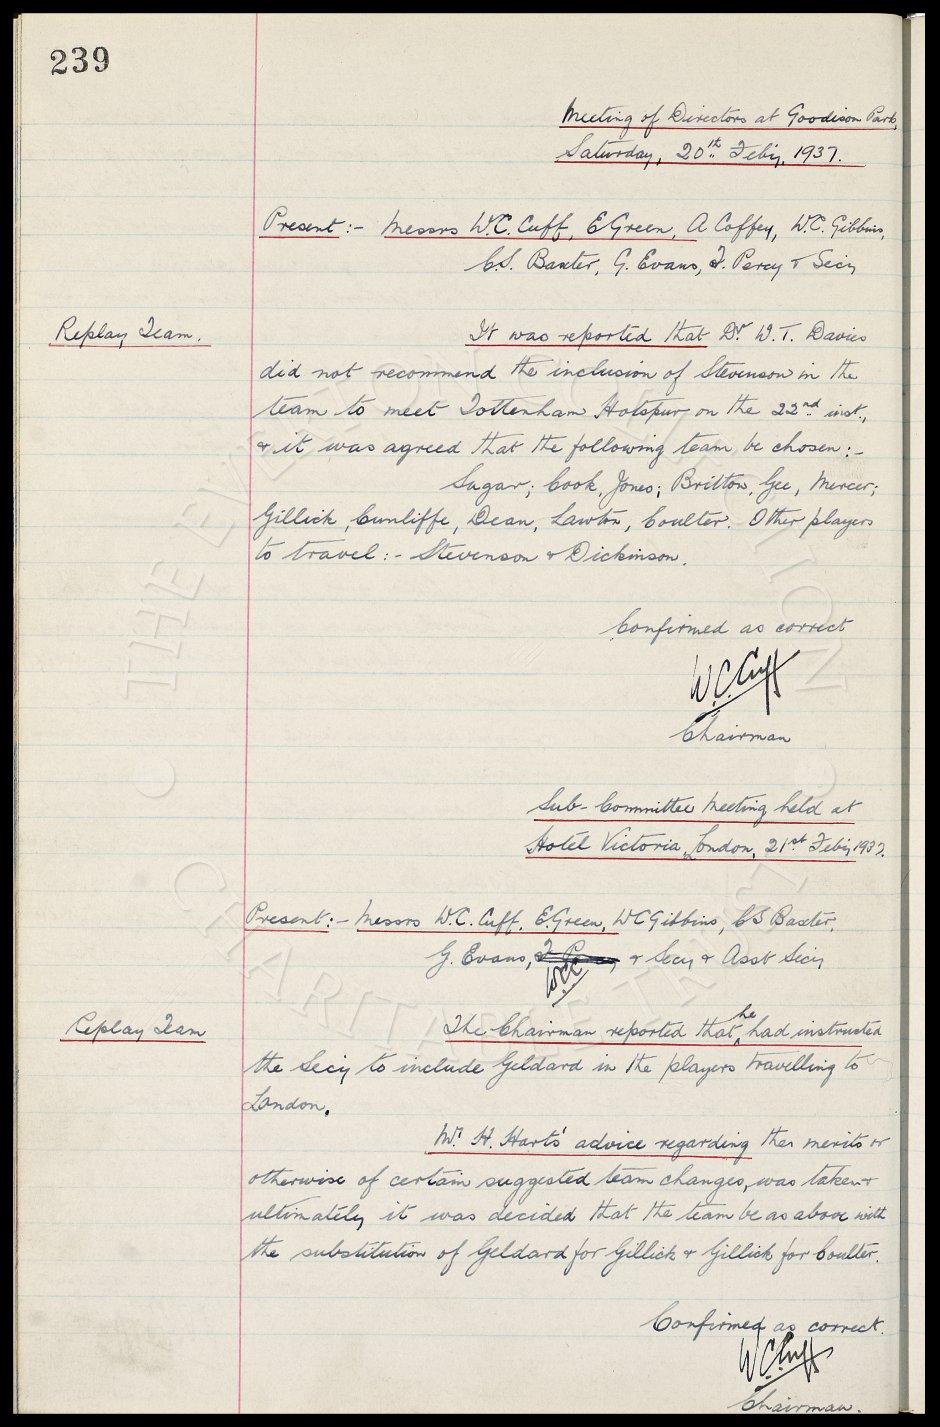 239
Meeting of Directors at Goodison Park,
Saturday, 20th Feby, 1937.
Present :- Messrs W.C. Cuff, E Green, A Coffey, W.C. Gibbins,
C.S. Baxter, G. Evans, F. Percy & Secy
Replay Team.
It was reported that Dr W.T. Davies
did not recommend the inclusion of Stevenson in the
team to meet Tottenham Hotspur on the 22nd inst.,
& it was agreed that the following team be chosen :-
Sagar; Cook, Jones; Britton, Gee, Mercer;
Gillick, Cunliffe, Dean, Lawton, Coulter. Other players
to travel :- Stevenson & Dickinson.
Confirmed as correct
W.C. Cuff
Chairman
Sub-Committee Meeting held at
Hotel Victoria, London, 21st Feby 1937.
Present :- Messrs W.C. Cuff, E. Green, W C Gibbins, C S Baxter,
G. Evans, F. Percy & Secy & Asst Secy
WCC
Replay Team
The Chairman reported that he had instructed
the Secy to include Geldard in the players travelling to
London.
Mr H. Hart's advice regarding the merits or
otherwise of certain suggested team changes, was taken &
ultimately it was decided that the team be as above with
the substitution of Geldard for Gillick & Gillick for Coulter.
Confirmed as correct.
W.C. Cuff
Chairman.
© THE EVERTON COLLECTION
CHARITABLE TRUST ©